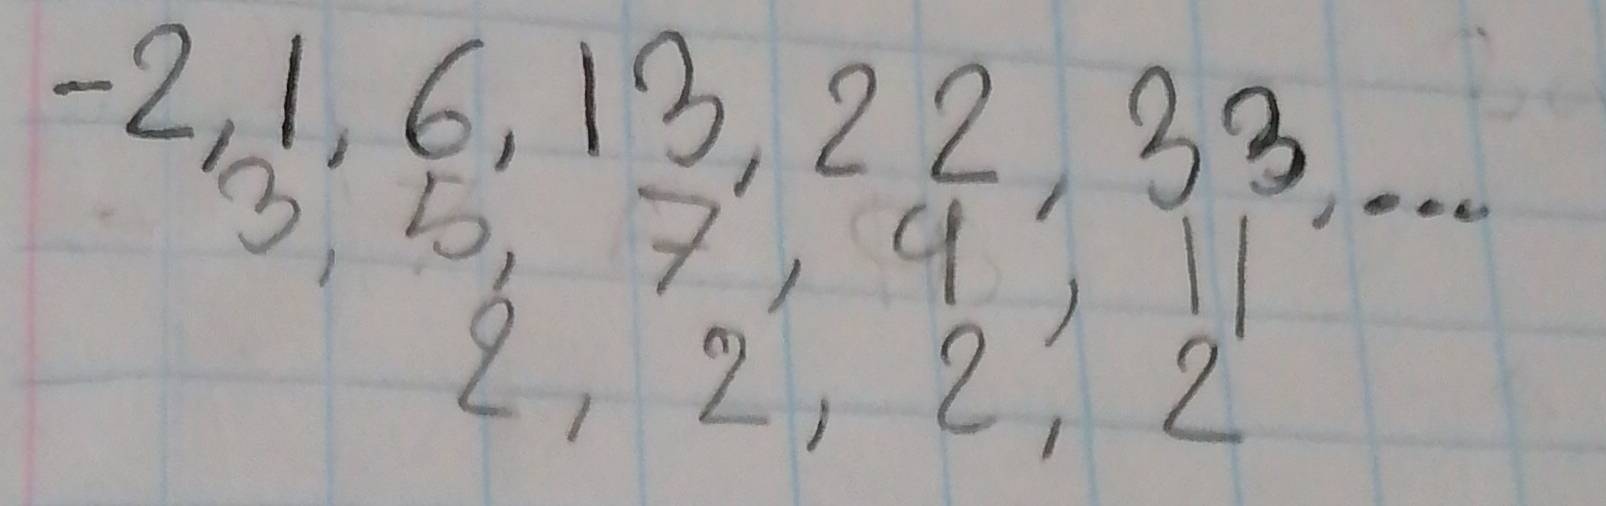 -2, 1, 6, 13, 22, 33, ...
3, 5, 7, 9, 11
2, 2, 2, 2